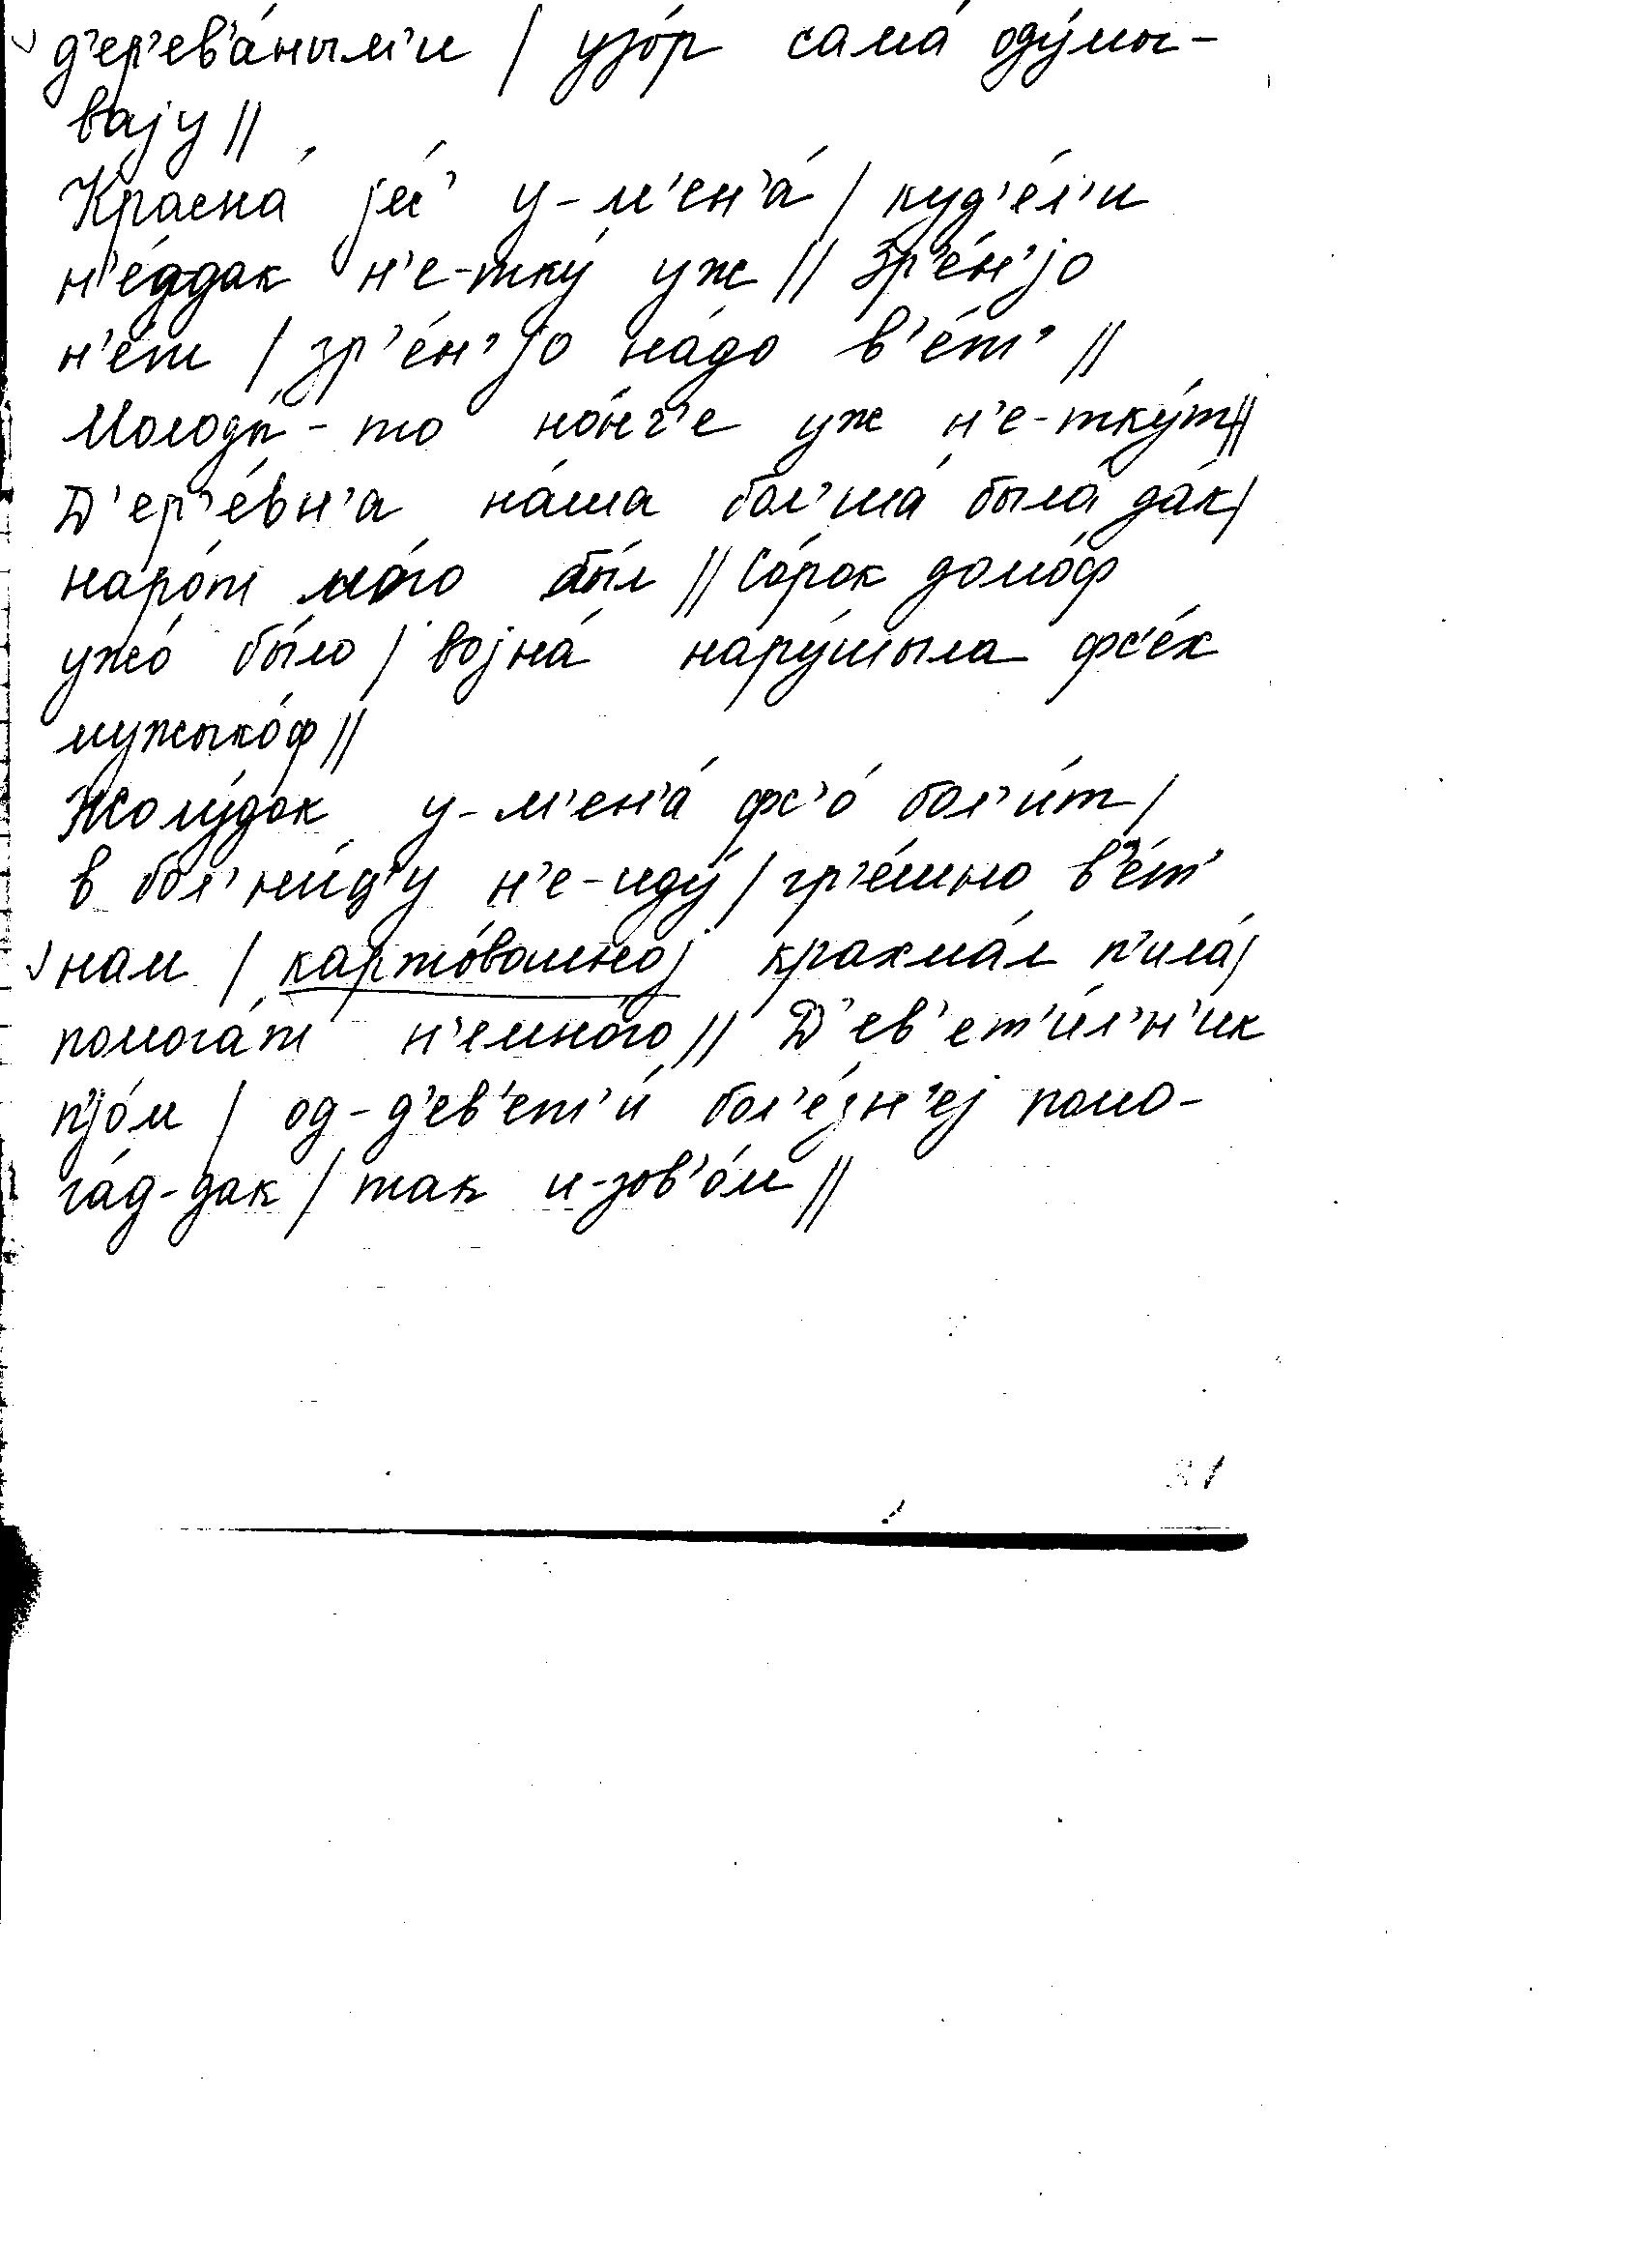 д'ер'ев'а́ным'и / узо́р сама́ оду́мы-
вају //
Красна́ је́с' у-м'ен'а́ / куд'е́л'и
н'е́ддак н'е-тку́ уж // Зр'е́н'јо
н'е́т / зр'е́н'јо на́до в'е́т' //
Молоды́-то но́нг'е уж н'е-тку́т //
Д'ер'е́вн'а на́ша бол'ша́ была́ да́к /
наро́т мо́го бы́л // Со́рок домо́ф
ужо́ бы́ло / војна́ нару́шыла фс'е́х
мужыко́ф //
Жолу́док у-м'ен'а́ фс'о́ бол'и́т /
в бол'ни́ц'у н'е-иду́ / гр'е́шно в'е́т'
нам / карто́вошној крахма́л п'ила́ /
помога́т н'емно́го // Д'ев'ет'и́л'н'ик
п'јо́м / од-д'ев'ет'и́ бол'е́зн'еј помо-
га́д-дак / так и-зов'о́м //
31